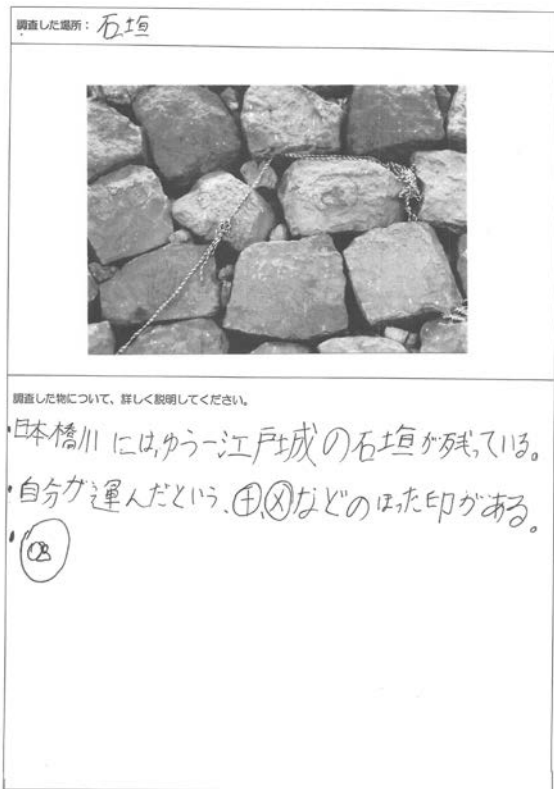 調査した場所: 石垣
調査した物について、詳しく説明してください。
・日本橋川にはゆう一江戸城の石垣が残っている。
・自分が運んだという、⊕、⊗などのほった印がある。
・